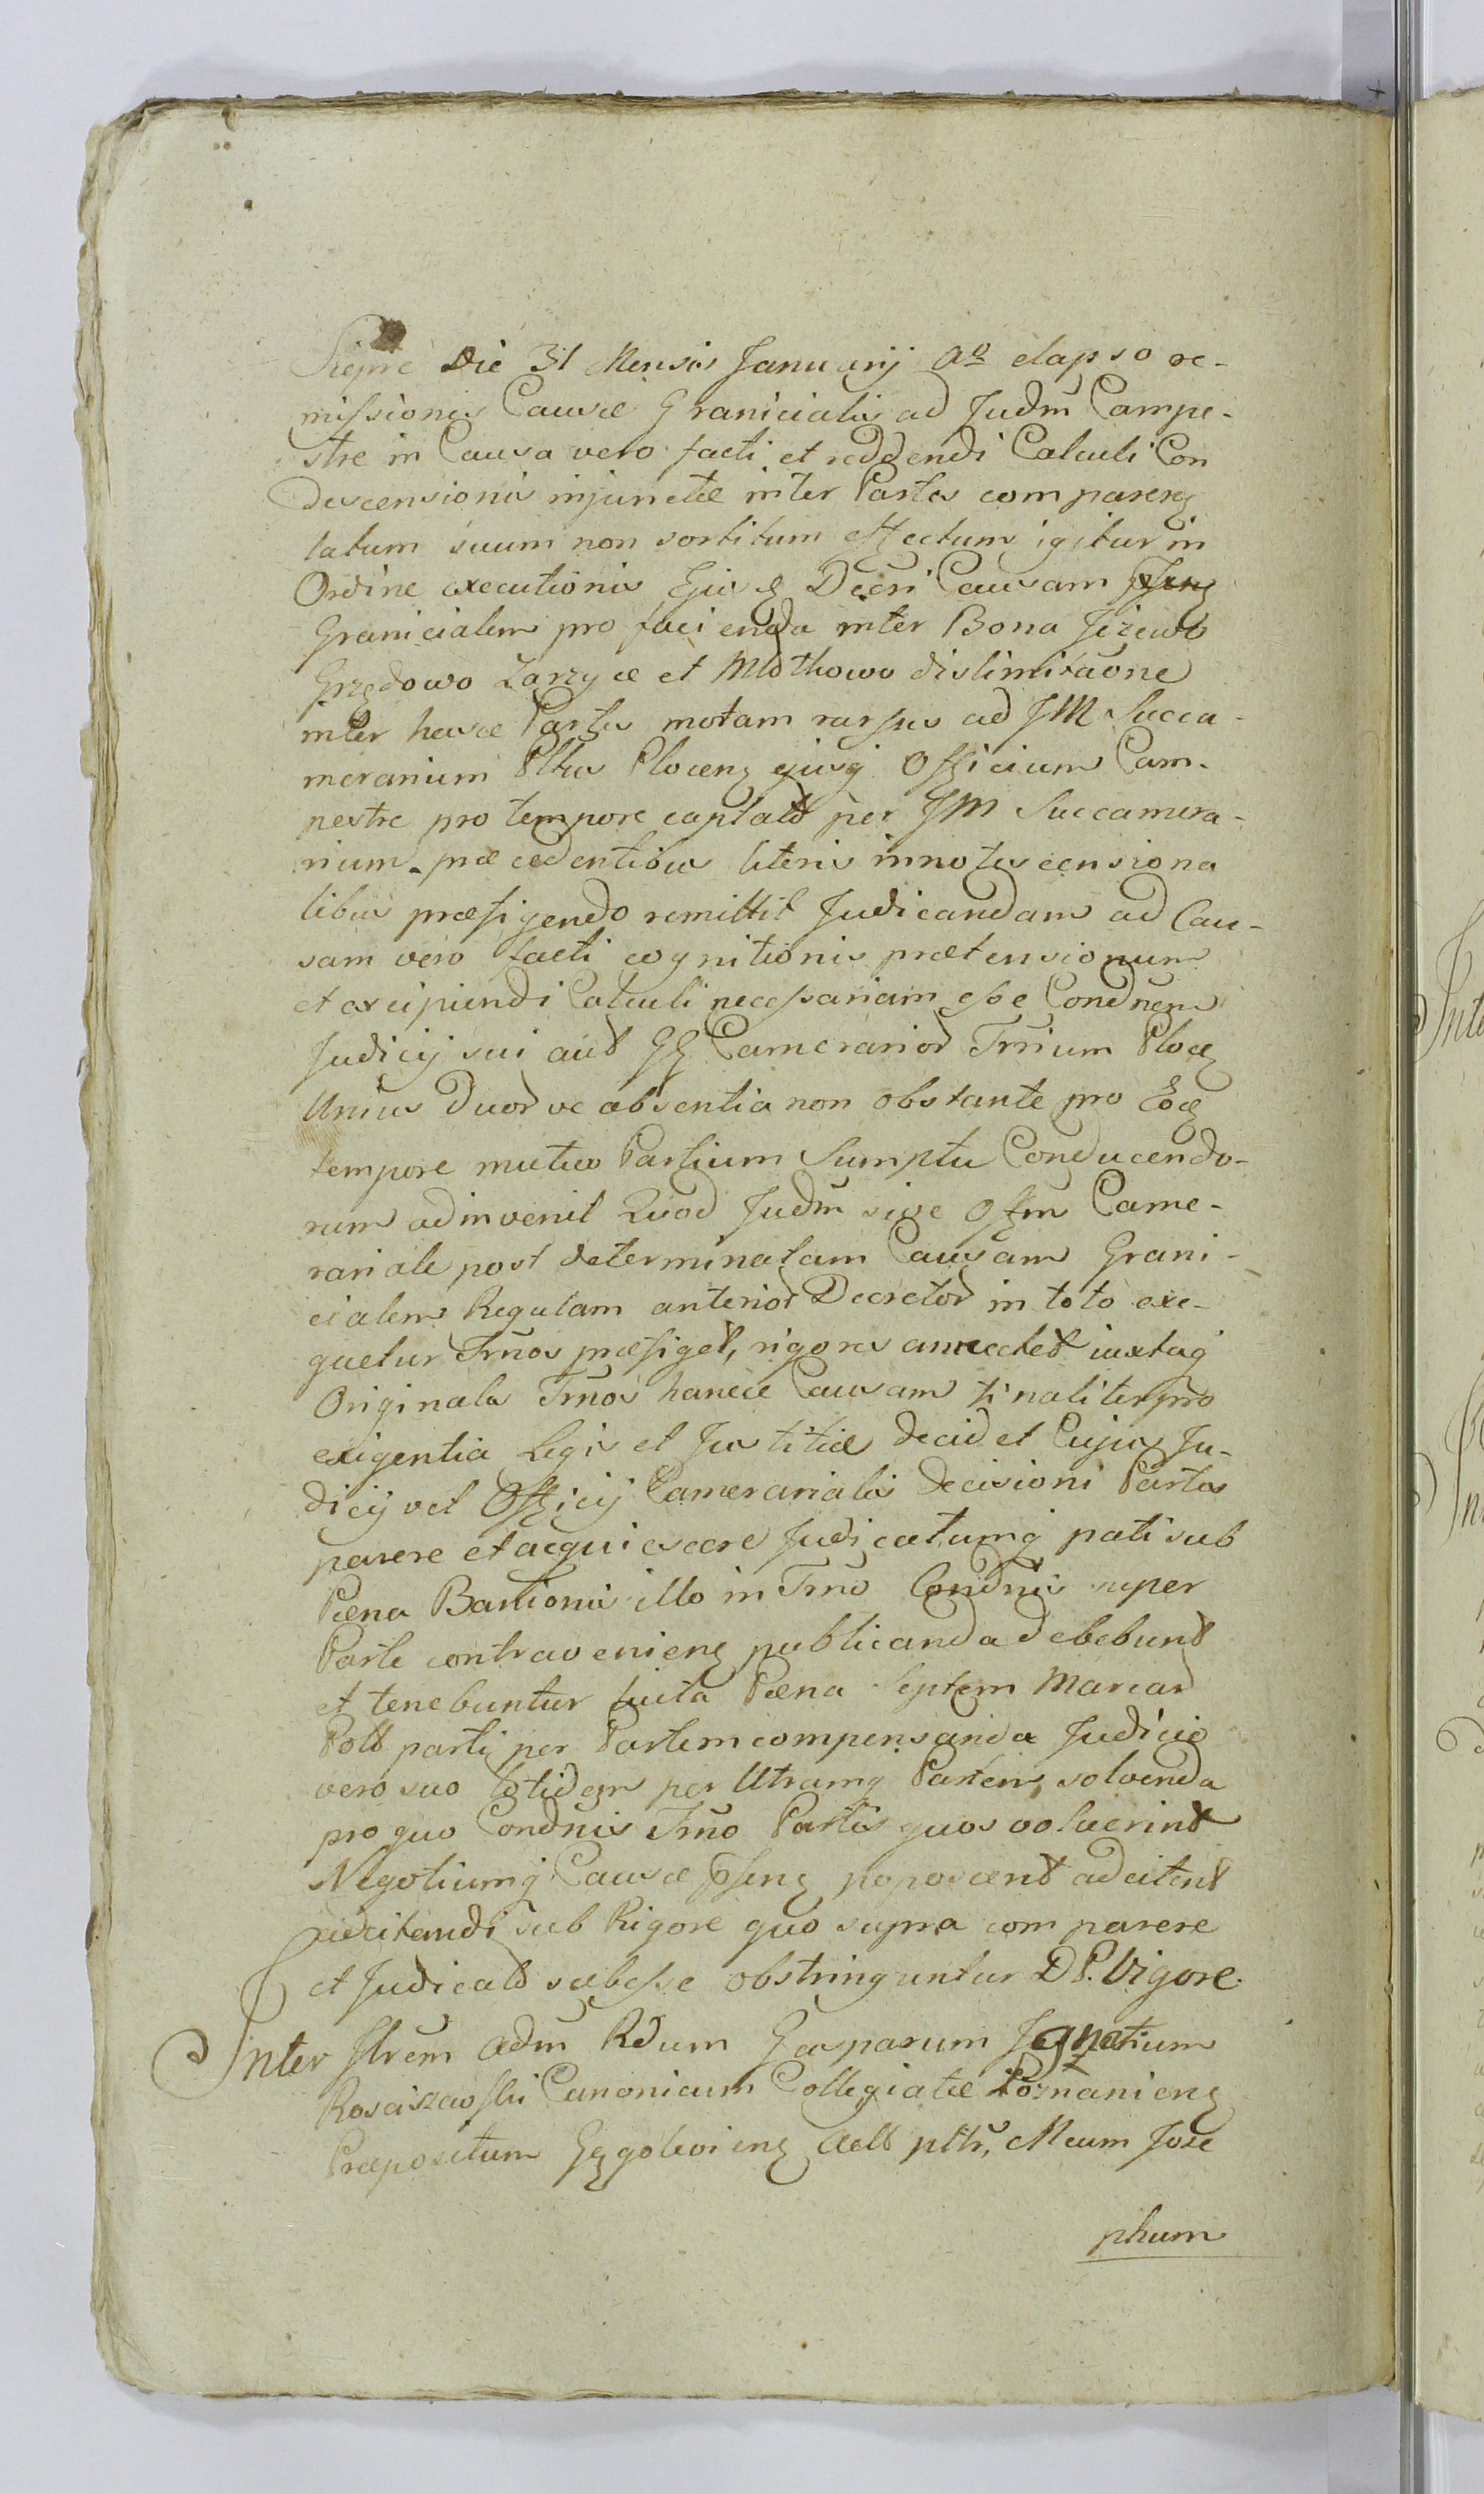 Siepre Die 31 Mensis Januarij Aº elapso re-
missionis Causæ Granicialis ad Judm̃ Campe-
stre in Causa vero facti et reddendi Calculi Con
descensionis injunctæ inter Partes comparen
tatum suum non sortitum effectum igitur in
Ordine executionis Ejusd Decri Causam
Granicialem pro facienda inter Bona Jizewo
Grzędowo Zarzyce et Młotkowo dislimitaõne
inter hasce Partes motam rarsus ad JM Succa-
merarium Pltus Plocen ejusq Officium Cam-
pestre pro tempore captato per JM Succamera-
rium præcedentibus literis innotescensiona
libus præfigendo remittit Judicandam ad Cau-
sam vero facti cognitionis prætensionum
et excipiendi Calculi necessariam esse Condnem
Judicij sui aut GG Camerarior Trrium Ploc
Unius Duor ve absentia non obstante pro Eo
tempore mutuo Partium Sumptu Conducendo-
rum adinvenit Quod Judm̃ sive Offm̃ Came-
rariale post determinatam Causam Grani-
cialem Regulam anterior Decretor in toto exe-
quetur Trños præfiget, rigores annectet iuxtaq
Originales Trños hancce Causam finaliter pro
exigentia Legis et Justitiæ decidet Cujus Ju-
dicij vel Officij Camerarialis decisioni Partes
parere et acquiescere Judicatumq pati sub
Pæna Bannionis illo in Trño Condñis super
Parte contravenien publicanda debebunt
et tenebuntur Luita Pæna Septem Marcar
Polt parti per Partem compensanda Judicio
vero suo totidem per Utramq Partem solvenda
pro quo Condñis Trño Partes quos voluerint
Negotiumq Causæ pñsen poposcent adcitent
adcitandi sub Rigore quo supra comparere
et Judicato subesse obstringuntur D P. Vigore.
Inter Jlrem Adm̃ Rdum Gasparum Jgnatium
Rosciszewski Canonicum Collegiatæ Poznanien
Præpositum Gggolevien Actt pltr, Meum Jose
phum